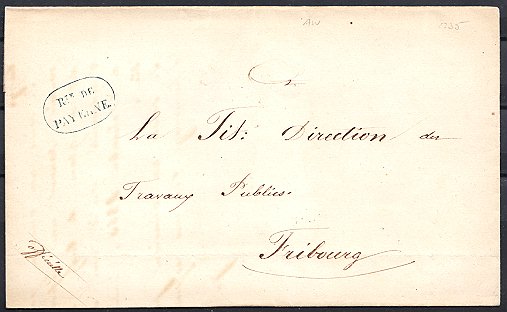 AW
1235
Rte DE
PAYERNE
La Tit: Direction des
Travaux Publics.
Fribourg
officielle